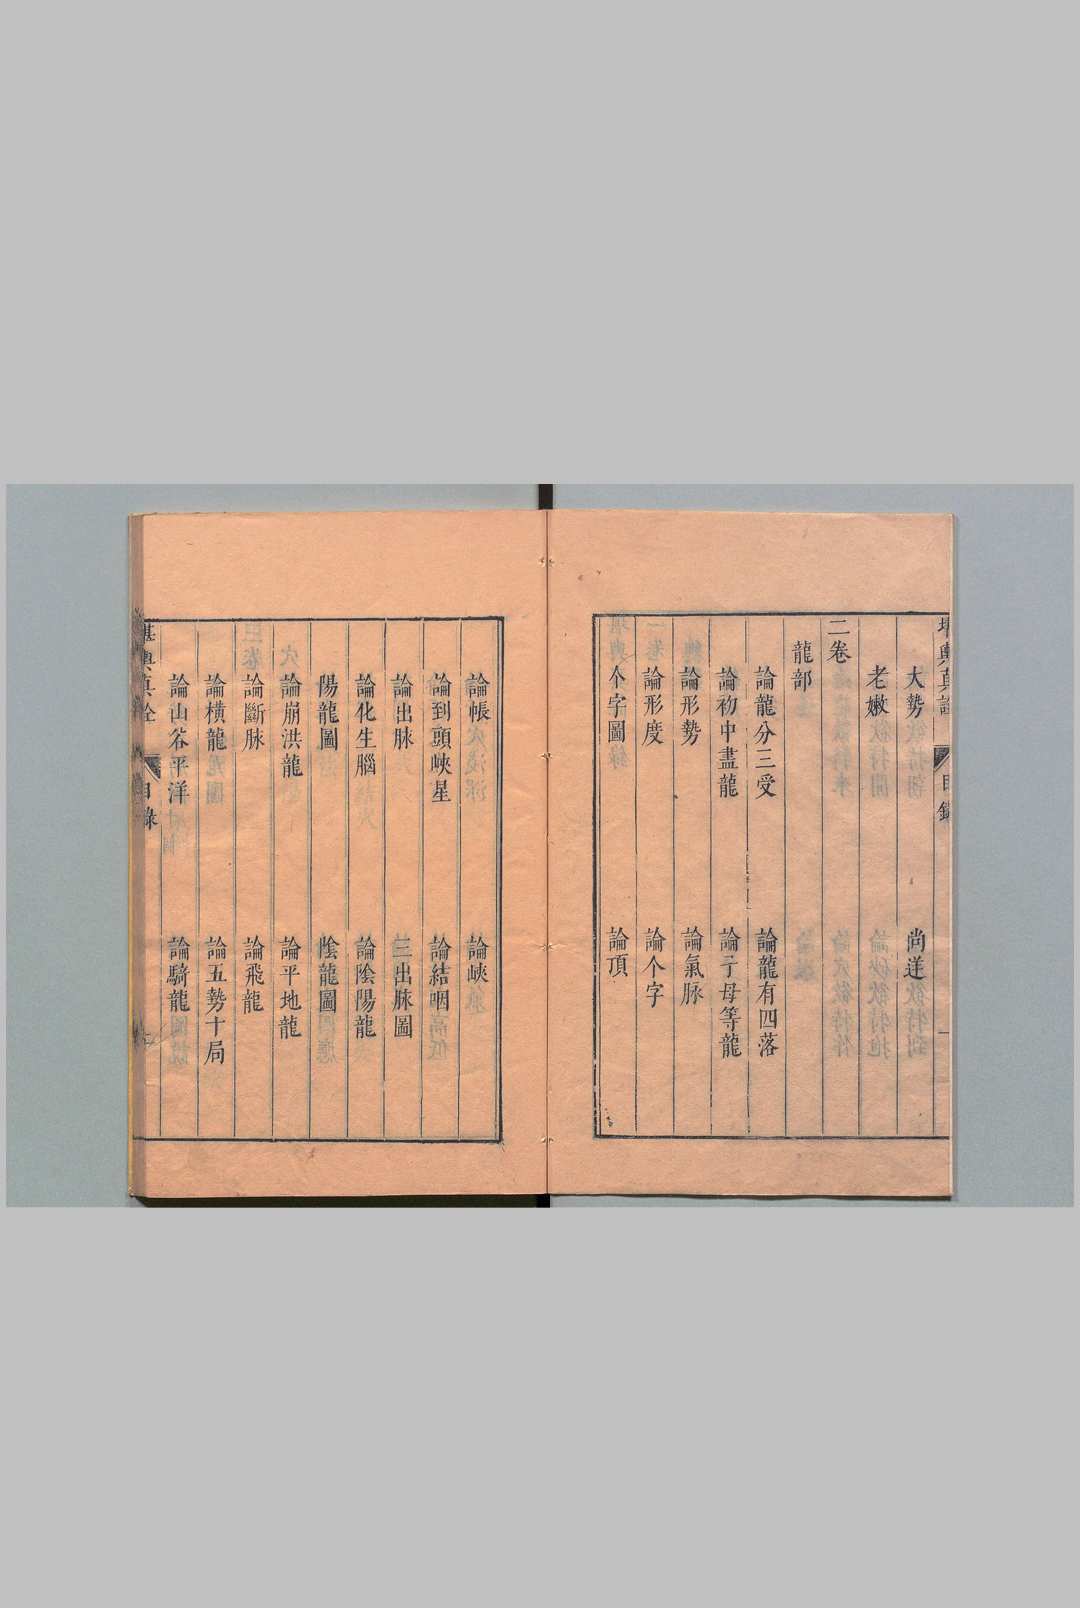 堪輿真詮 目錄 一
大勢 尚迷
老嫩
二卷
龍部
論龍分三受 論龍有四落
論初中盡龍 論子母等龍
論形勢 論氣脉
論形度 論个字
个字圖 論頂
論帳 論峽
論到頭峽星 論結咽
論出脉 三出脉圖
論化生腦 論陰陽龍
陽龍圖 陰龍圖
論崩洪龍 論平地龍
論斷脉 論飛龍
論橫龍 論五勢十局
論山谷平洋 論騎龍
堪輿真詮 目錄